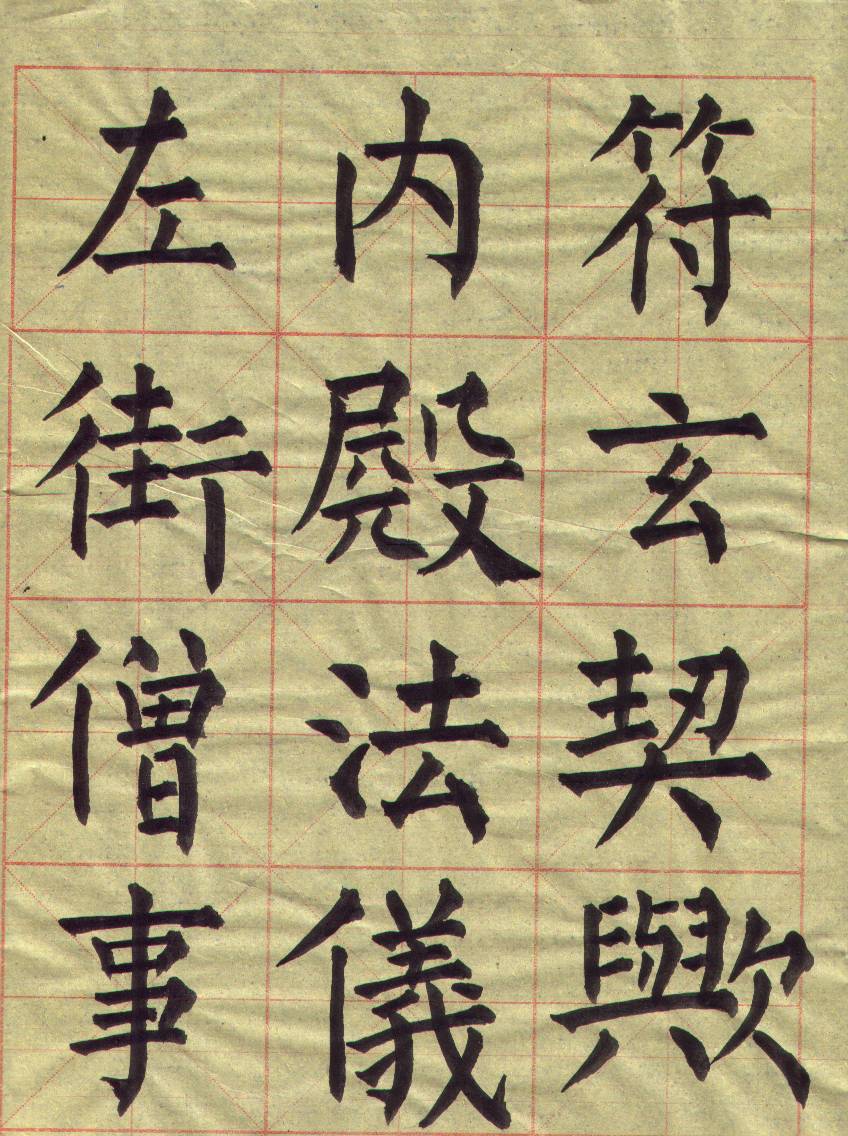 符玄契歟
内殿法儀
左街僧事